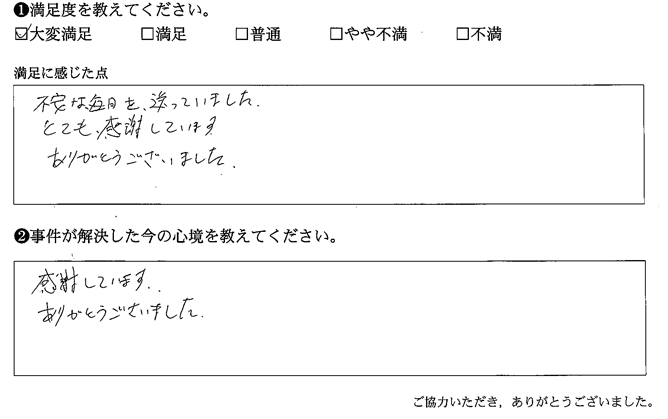 ❶満足度を教えてください。
☑大変満足 □満足 □普通 □やや不満 □不満
満足に感じた点
不安な毎日を、送っていました.
とても、感謝しています
ありがとうございました.
❷事件が解決した今の心境を教えてください。
感謝しています..
ありがとうございました.
ご協力いただき，ありがとうございました。